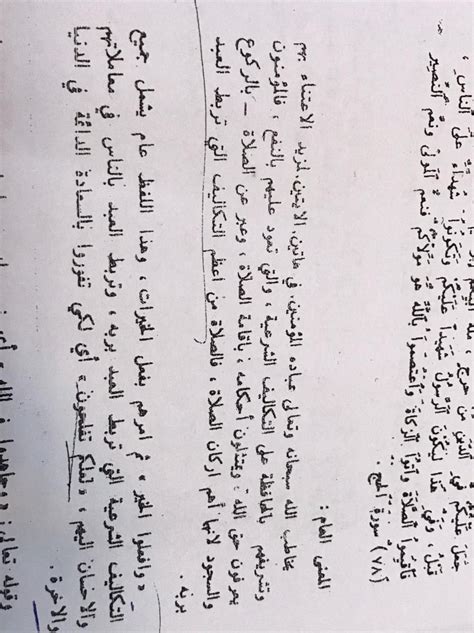 جعل عليكم في الدين من حرج ملة أبيكم
قبل وفي هذا ليكون الرسول شهيداً عليكم وتكونوا شهداء على الناس ،
فأقيموا الصلاة وآتوا الزكاة واعتصموا بالله هو مولاكم فنعم المولى ونعم النصير
(٧٨) سورة الحج .
المعنى العام :
يخاطب الله سبحانه وتعالى عباده المؤمنين، في هاتين الآيتين لمزيد الاعتناء بهم
وتشريفهم بالمحافظة على التكاليف الشرعية ، والتي تعود عليهم بالنفع ، فالمؤمنون
يعرفون حق الله ، ويمتثلون أحكامه : بإقامة الصلاة ، وعبر عن الصلاة - بالركوع
والسجود لأنها أهم أركان الصلاة ، فالصلاة من أعظم التكاليف التي تربط العبد
بربه .
« وافعلوا الخير » ثم أمرهم بفعل الخيرات ، وهذا اللفظ عام يشمل جميع
التكاليف الشرعية التي تربط العبد بربه ، وتربط العبد بالناس في معاملاتهم
والإحسان إليهم ، « لعلكم تفلحون » أي لكي تفوزوا بالسعادة الدائمة في الدنيا
والآخرة .
وقوله تعالى : « وجاهدوا في الله » أي